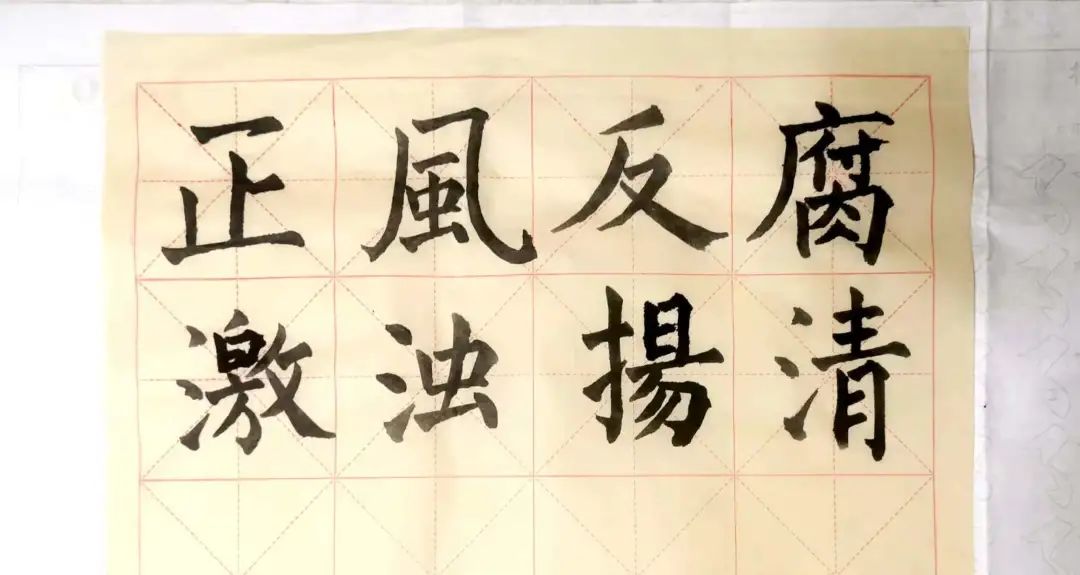 正風反腐
激浊揚清